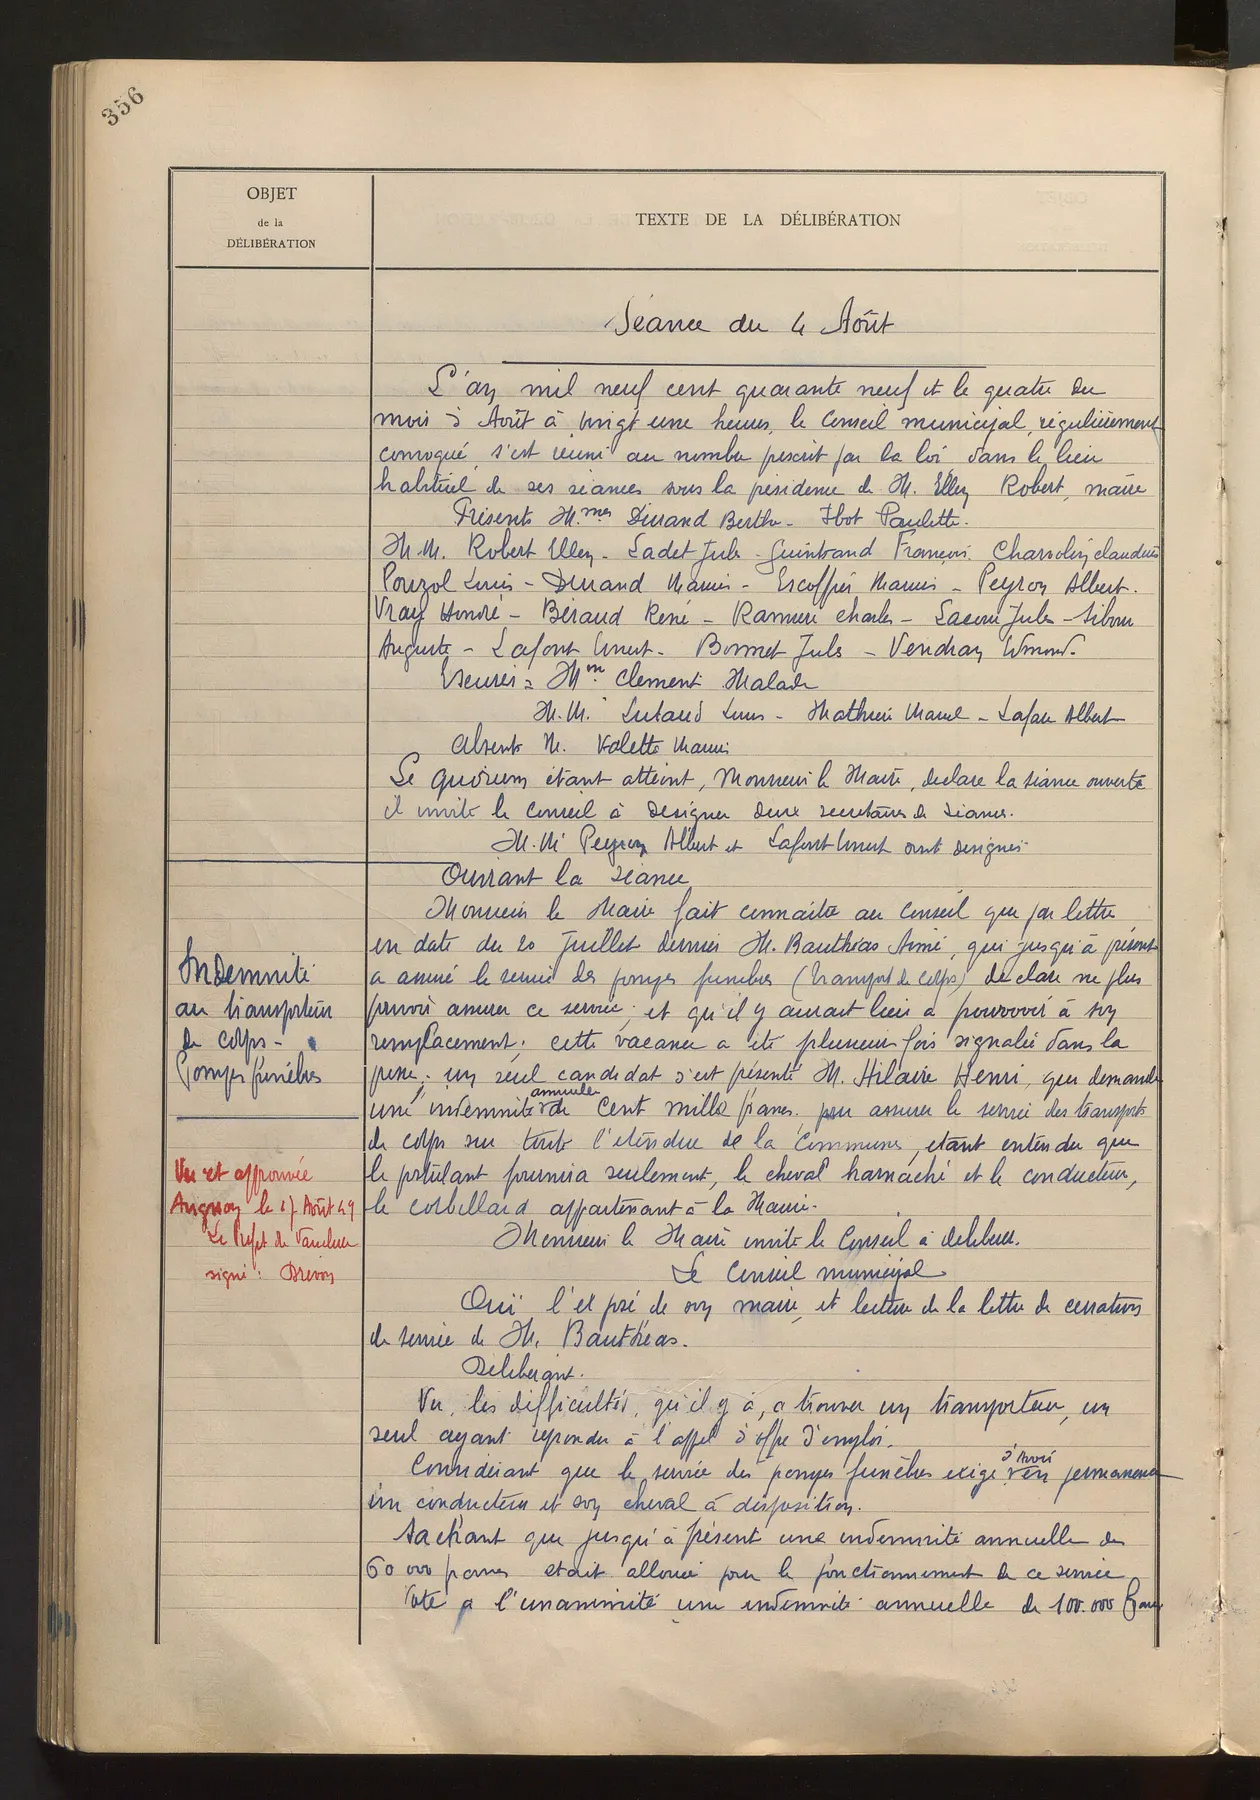 356
OBJET
de la
DÉLIBÉRATION
TEXTE DE LA DÉLIBÉRATION
Séance du 4 Août
L'an mil neuf cent quarante neuf et le quatre du
mois d'Août à vingt une heures, le Conseil municipal, régulièrement
convoqué, s'est réuni au nombre prescrit par la loi dans le lieu
habituel de ses séances sous la présidence de M. Elley Robert, maire
Présents Mmes Durand Berthe - Ibot Paulette.
M.M. Robert Elley - Ladet Jules - Guintrand François. Charvolin Claudius
Pouzol Louis - Durand Marius - Escoffier Marius - Peyron Albert.
Vray Honoré - Béraud René - Ramière Charles - Lacour Jules - Sibour
Auguste - Lafont Ernest - Bonnet Jules - Vendran Edmond.
Excusés = Mme Clement Malade
M.M. Lutaud Louis - Mathieu Marcel - Lafare Albert
Absents M. Valette Marius
Le quorum étant atteint, Monsieur le Maire, declare la séance ouverte
il invite le conseil à designer deux secretaires de séance.
M.M. Peyron Albert et Lafont Ernest ont designés
Ouvrant la séance
Monsieur le Maire fait connaitre au Conseil que par lettre
en date du 20 Juillet dernier M. Bauthéas Aimé, qui jusqu'à présent
a assuré le service des pompes funebres (transport de corps) declare ne plus
pouvoir assurer ce service; et qu'il y aurait lieu a pourvoir à son
remplacement; cette vacance a été plusieurs fois signalée dans la
presse; un seul candidat s'est présenté M. Hilaire Henri, qui demande
une indemnité annuelle de cent mille francs, pour assurer le service des transports
de corps sur toute l'etendue de la Commune, etant entendu que
le postulant fournira seulement, le cheval harnaché et le conducteur,
le corbillard appartenant à la Mairie.
Monsieur le Maire invite le Conseil à deliberer.
Le Conseil municipal
Ouï l'exposé de son maire, et lecture de la lettre de cessation
de service de M. Bauthéas.
Déliberant.
Vu, les difficultés, qu'il y à, a trouver un transporteur, un
seul ayant repondu à l'appel d'offre d'emploi.
Considérant que le service des pompes funèbres exige d'avoir en permanence
un conducteur et son cheval à disposition.
Sachant que jusqu'à présent une indemnité annuelle de
60 000 francs etait allouée pour le fonctionnement de ce service
Vote a l'unanimité une indemnité annuelle de 100.000 francs
Indemnité
au transporteur
de corps -
Pompes funèbres
Vu et approuvée
Avignon le 17 Août 49
Le Préfet de Vaucluse
signé : Drevon